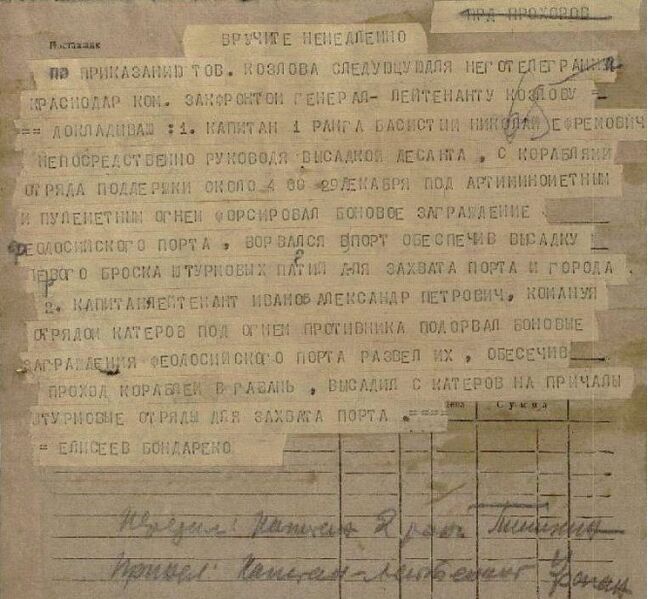 ПРД ПРОХОРОВ
Поставщик
ВРУЧИТЕ НЕМЕДЛЕННО
ПО ПРИКАЗАНИЮ ТОВ. КОЗЛОВА СЛЕДУЮЩУЮДЛЯ НЕГОТЕЛЕГРАММ
КРАСНОДАР КОМ. ЗАКФРОНТОМ ГЕНЕРАЛ- ЛЕЙТЕНАНТУ КОЗЛОВУ =
== ДОКЛАДИВАЮ :1. КАПИТАН 1 РАНГА БАСИСТИЙ НИКОЛАЙ ЕФРЕМОВИЧ
НЕПОСРЕДСТВЕННО РУКОВОДЯ ВЫСАДКОЙ ДЕСАНТА , С КОРАБЛЯМИ
ОТРЯДА ПОДДЕРЖКИ ОКОЛО 4 00 29ДЕКАБРЯ ПОД АРТИМИНОМЕТНЫМ
И ПУЛЕМЕТНЫМ ОГНЕМ ФОРСИРОВАЛ БОНОВОЕ ЗАГРАЖДЕНИЕ
ФЕОДОСИЙСКОГО ПОРТА , ВОРВАЛСЯ ВПОРТ ОБЕСПЕЧИВ ВЫСАДКУ
ПЕРВОГО БРОСКА ШТУРМОВЫХ ПАТИЙ ДЛЯ ЗАХВАТА ПОРТА И ГОРОДА .
2. КАПИТАНЛЕЙТЕНАНТ ИВАНОВ АЛЕКСАНДР ПЕТРОВИЧ, КОМАНУЯ
ОТРЯДОМ КАТЕРОВ ПОД ОГНЕМ ПРОТИВНИКА ПОДОРВАЛ БОНОВЫЕ
ЗАГРАЖДЕНИЯ ФЕОДОСИЙСКОГО ПОРТА РАЗВЕЛ ИХ , ОБЕСЕЧИВ
ПРОХОД КОРАБЛЕЙ В ГАВАНЬ , ВЫСАДИЛ С КАТЕРОВ НА ПРИЧАЛЫ
ШТУРМОВЫЕ ОТРЯДЫ ДЛЯ ЗАХВАТА ПОРТА .====
Сумма
= ЕЛИСЕЕВ БОНДАРЕКО
Капитан 2 ранг
Принял: Капитан-Лейтенант